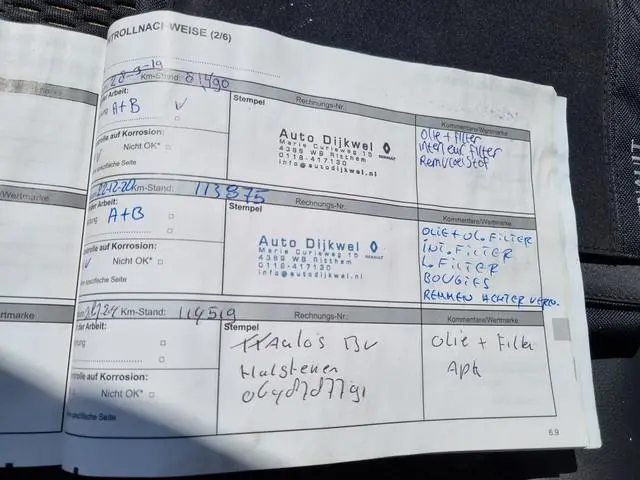 TROLLNACHWEISE (2/6)
28-9-19 Km-Stand: 81490
der Arbeit:
A+B
rolle auf Korrosion:
Nicht OK*
spezifische Seite
Stempel
Rechnungs-Nr.:
Auto Dijkwel
Marie Curieweg 15
4389 WB Ritthem
0118-417130
info@autodijkwel.nl
RENAULT
Kommentare/Wertmarke
Olie + filter
interieur filter
Remvloeistof
/Wertmarke
22-12-20 Km-Stand: 113875
der Arbeit:
A+B
rolle auf Korrosion:
Nicht OK*
spezifische Seite
Stempel
Rechnungs-Nr.:
Auto Dijkwel
Marie Curieweg 15
4389 WB Ritthem
0118-417130
info@autodijkwel.nl
RENAULT
Kommentare/Wertmarke
OLIE + OL. FILTER
INT. FILTER
L. FILTER
BOUGIES
REMMEN ACHTER VERV.
rtmarke
Km-Stand: 114519
der Arbeit:
rolle auf Korrosion:
Nicht OK*
spezifische Seite
Stempel
Rechnungs-Nr.:
BV
Kommentare/Wertmarke
Olie + Filter
Apk
6.9